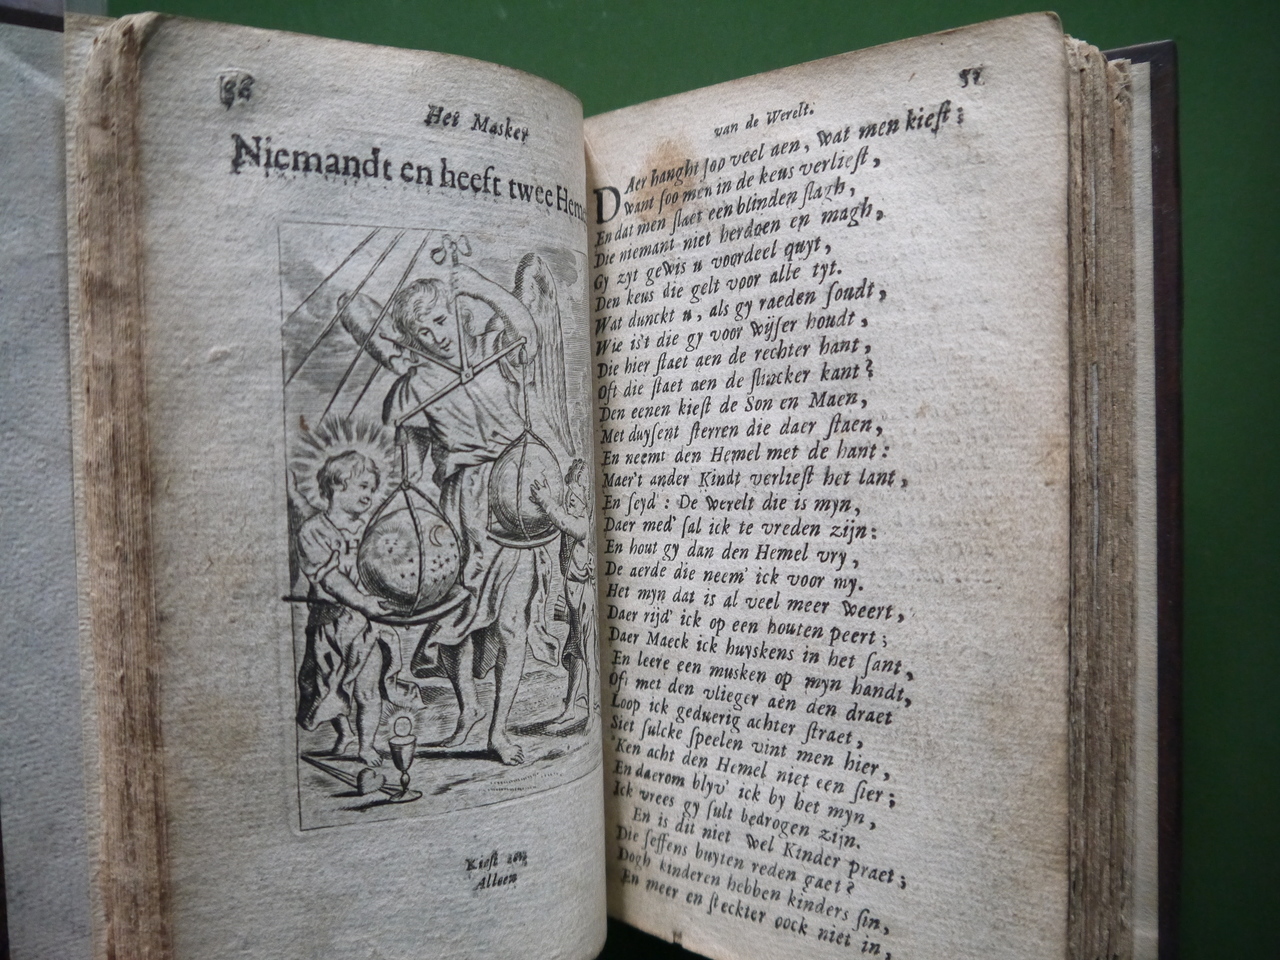 Het Masker
Niemandt en heeft twee Heme
Kiest een
Alleen
57
van de Werelt.
DAer hanght soo veel aen, wat men kiest;
Want soo men in de keus verliest,
En dat men slaet een blinden slagh,
Die niemant niet herdoen en magh,
Gy zyt gewis u voordeel quyt,
Den keus die gelt voor alle tyt.
Wat dunckt u, als gy raeden soudt,
Wie is't die gy voor wijser houdt,
Die hier staet aen de rechter hant,
Oft die staet aen de slincker kant?
Den eenen kiest de Son en Maen,
Met duysent sterren die daer staen,
En neemt den Hemel met de hant:
Maer't ander Kindt verliest het lant,
En seyd': De werelt die is myn,
Daer med' sal ick te vreden zijn:
En hout gy dan den Hemel vry,
De aerde die neem' ick voor my.
Het myn dat is al veel meer weert,
Daer rijd' ick op een houten peert;
Daer Maeck ick huyskens in het sant,
En leere een musken op myn handt,
Oft met den vlieger aen den draet
Loop ick geduerig achter straet,
Siet sulcke speelen vint men hier,
'Ken acht den Hemel niet een sier;
En daerom blyv' ick by het myn,
Ick vrees gy sult bedrogen zijn.
En is dit niet wel Kinder praet;
Die seffens buyten reden gaet?
Dogh kinderen hebben kinders sin,
En meer en steckter oock niet in,